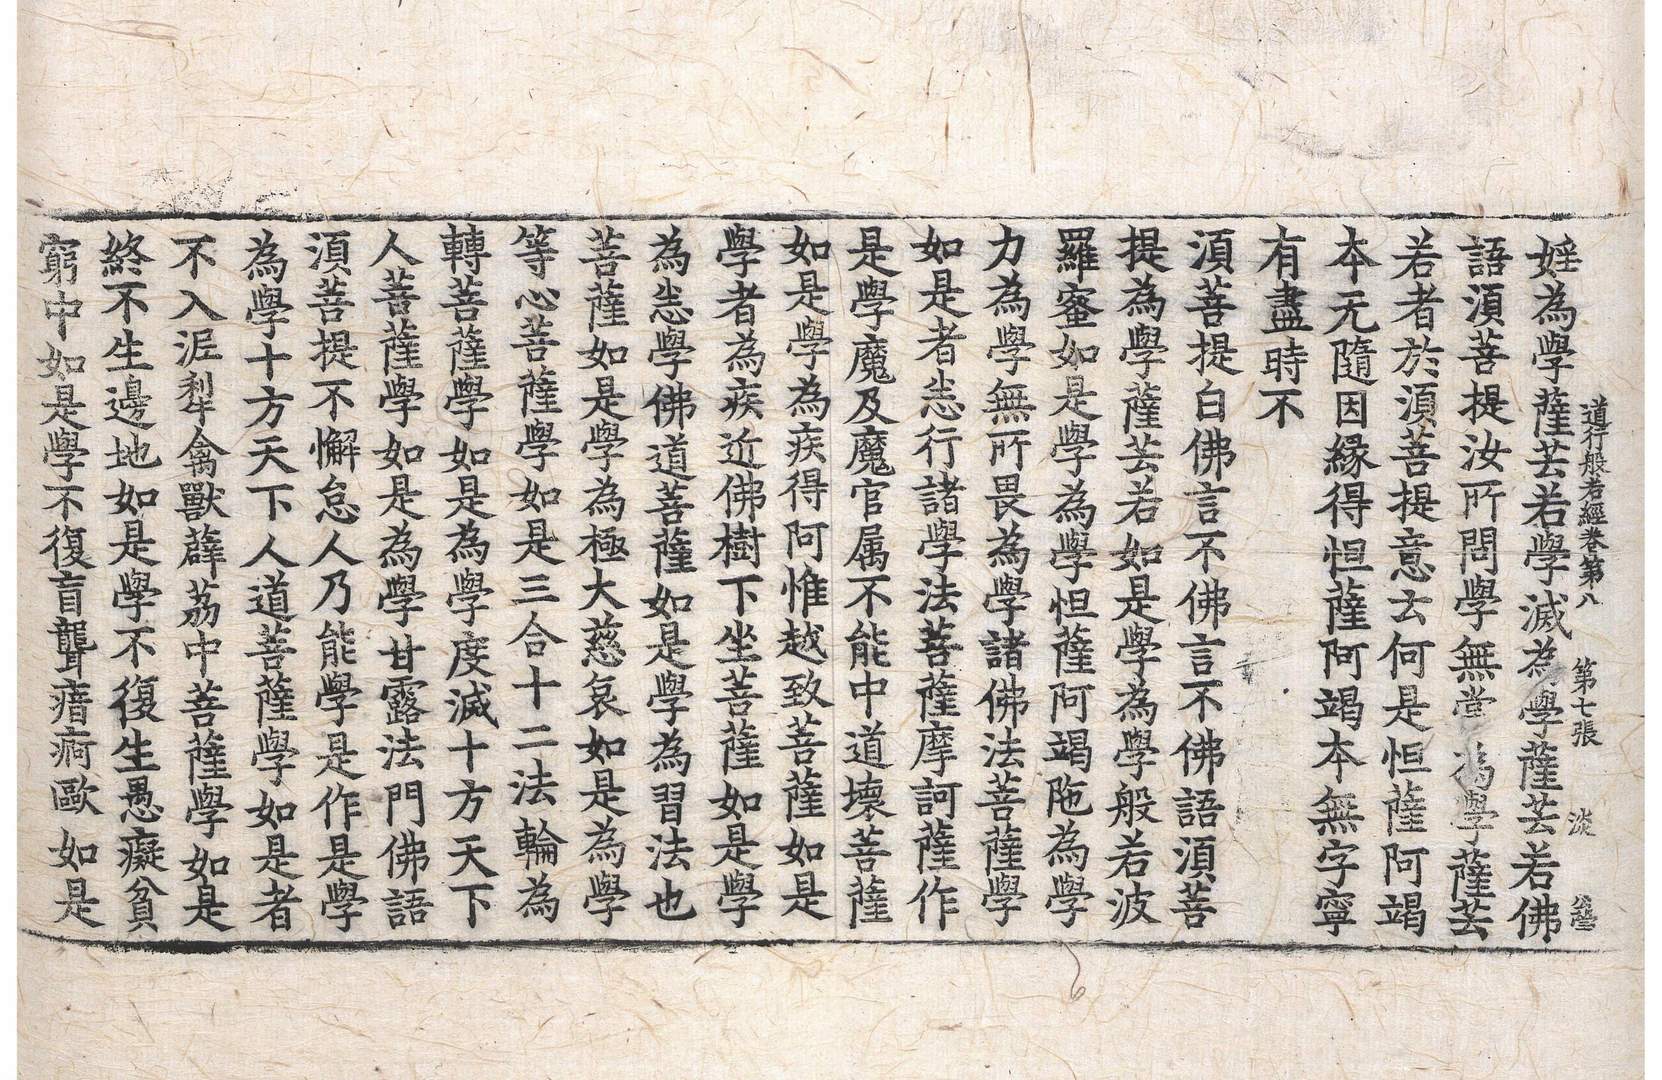 道行般若經卷第八　第七張　淡
婬為學薩芸若學滅為學薩芸若佛
語須菩提汝所問學無常為學薩芸
若者於須菩提意云何是怛薩阿竭
本无隨因緣得怛薩阿竭本無字寧
有盡時不
須菩提白佛言不佛言不佛語須菩
提為學薩芸若如是學為學般若波
羅蜜如是學為學怛薩阿竭陁為學
力為學無所畏為學諸佛法菩薩學
如是者悉行諸學法菩薩摩訶薩作
是學魔及魔官属不能中道壞菩薩
如是學為疾得阿惟越致菩薩如是
學者為疾近佛樹下坐菩薩如是學
為悉學佛道菩薩如是學為習法也
菩薩如是學為極大慈哀如是為學
等心菩薩學如是三合十二法輪為
轉菩薩學如是為學度滅十方天下
人菩薩學如是為學甘露法門佛語
須菩提不懈怠人乃能學是作是學
為學十方天下人道菩薩學如是者
不入泥犁禽獸薜荔中菩薩學如是
終不生邊地如是學不復生愚癡貧
窮中如是學不復盲聾瘖瘂歐如是